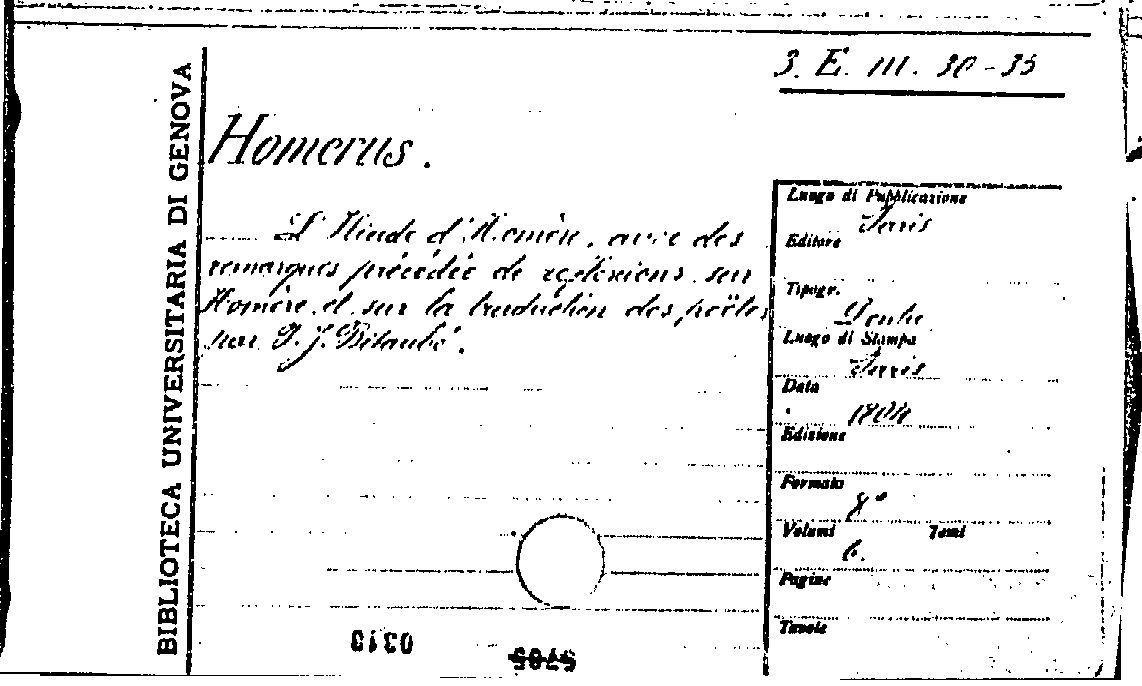 3. E. III. 30-35
BIBLIOTECA UNIVERSITARIA DI GENOVA
Homerus.
L'Iliade d'Homère, avec des
remarques précédée de reflexions sur
Homère et sur la traduction des poëtes
par P. J. Bitaubé.
Luogo di Pubblicazione
Paris
Editore
Tipogr.
Dentu
Luogo di Stampa
Paris
Data
1804
Edizione
Formato
8°
Volumi Tomi
6.
Pagine
Tavole